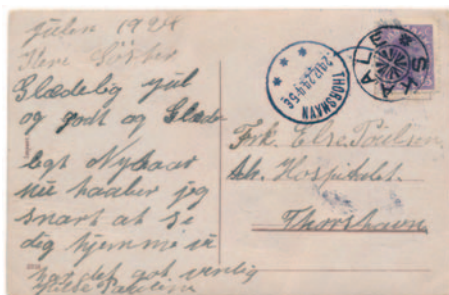 julen 1924
Glædelig jul
og godt og Glæde
ligt Nybaar
nu haaber jeg
snart at se
dig hjemme
hav det got venlig
hilse
THORSHAVN
24.12.24.4-5E
SKAALE
Frk. Else Poulson
Hospitalet.
Thorshavn